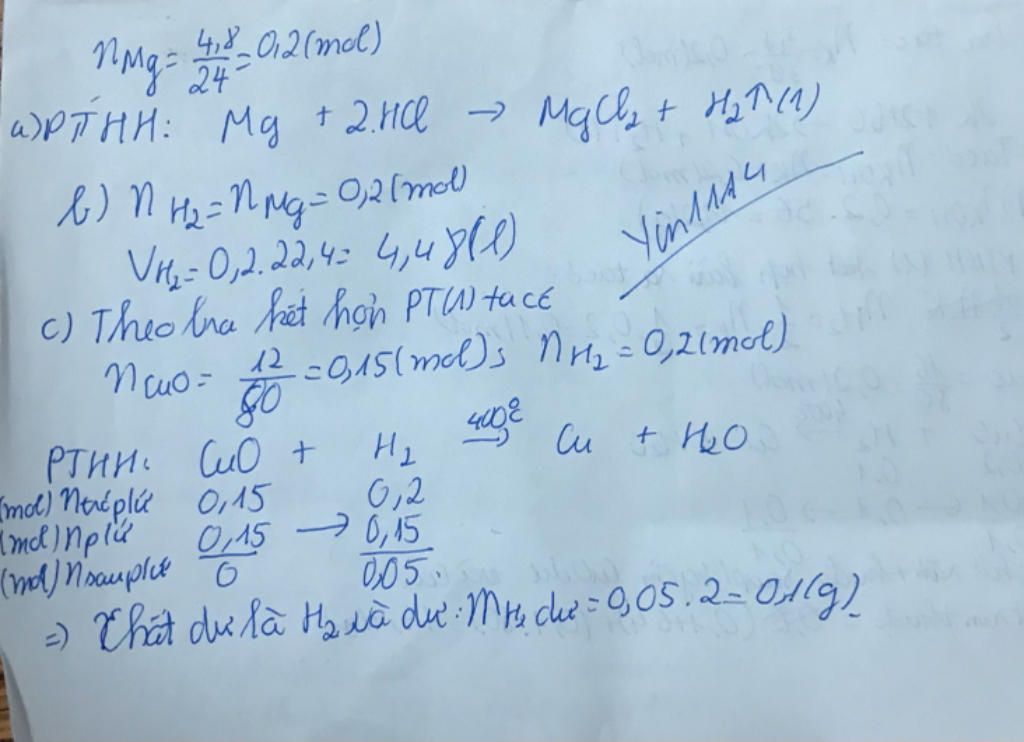 nMg = 4,8/24 = 0,2(mol)
a) PTHH: Mg + 2.HCl → MgCl₂ + H₂↑(1)
b) nH₂ = nMg = 0,2(mol)
VH₂ = 0,2.22,4 = 4,48(l)
Yin111A4
c) Theo kết hợp PT(1) ta có
nCuO = 12/80 = 0,15(mol); nH₂ = 0,2(mol)
PTHH: CuO + H₂ 400°C→ Cu + H₂O
(mol) n 0,15 0,2
(mol) n pứ 0,15 → 0,15
(mol) n sau pứ 0 0,05
⇒ Chất dư là H₂ và dư: mH₂ dư = 0,05.2 = 0,1(g)